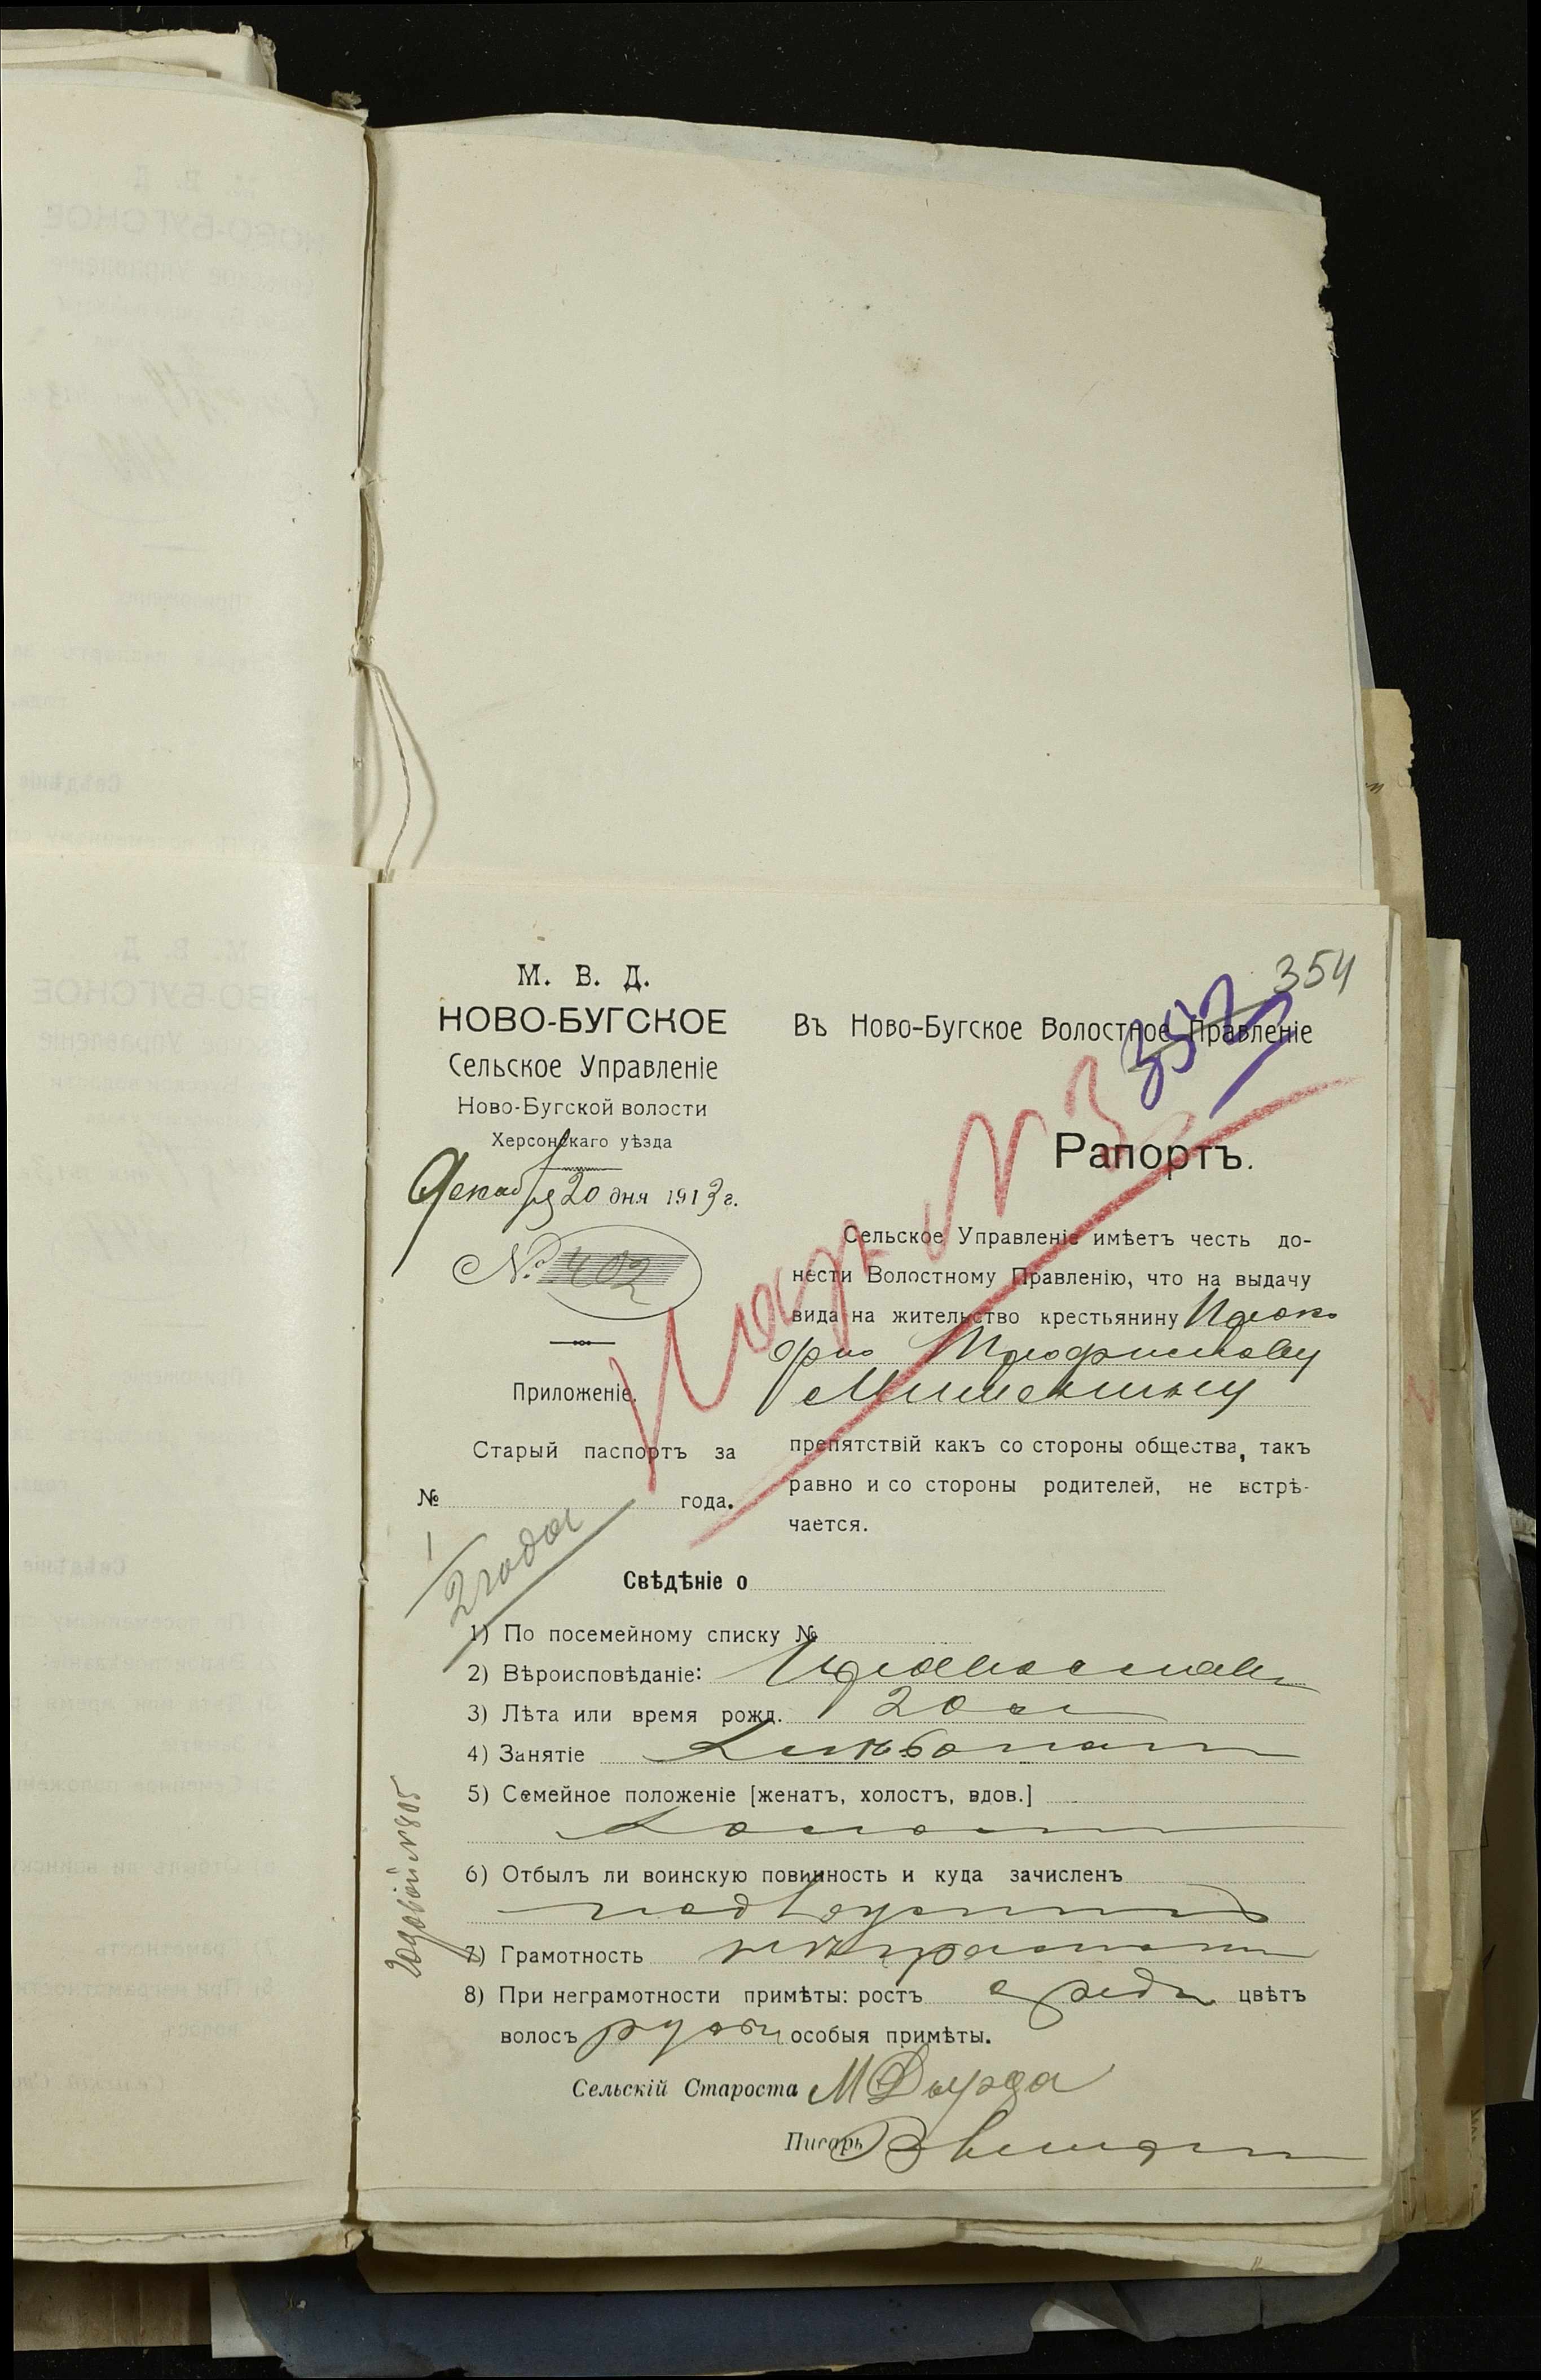 354
352
М. В. Д.
НОВО-БУГСКОЕ
Сельское Управленіе
Ново-Бугской волости
Херсонскаго уѣзда
Декабря 20 дня 1913 г.
№ 402
Приложеніе.
Старый паспортъ за
№ года.
Въ Ново-Бугское Волостное Правленіе
Рапортъ.
Сельское Управленіе имѣетъ честь до-
нести Волостному Правленію, что на выдачу
вида на жительство крестьянину
Трофимову
препятствій какъ со стороны общества, такъ
равно и со стороны родителей, не встрѣ-
чается.
2 года
Свѣдѣніе о
1) По посемейному списку №
2) Вѣроисповѣданіе: Православн
3) Лѣта или время рожд. 20 л
4) Занятіе Хлѣбопаш
5) Семейное положеніе [женатъ, холостъ, вдов.]
холост
6) Отбылъ ли воинскую повинность и куда зачисленъ
7) Грамотность неграмотн
8) При неграмотности примѣты: ростъ средн цвѣтъ
волосъ русы особыя примѣты.
Сельскій Староста М Дырда
Писарь
Годовой № 805